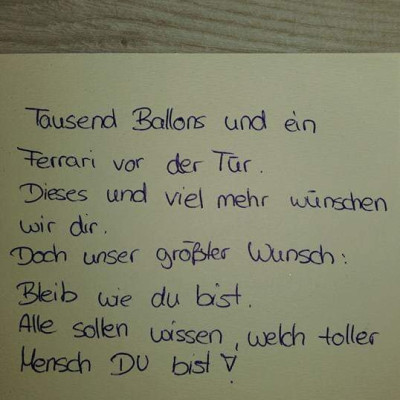 Tausend Ballons und ein
Ferrari vor der Tür.
Dieses und viel mehr wünschen
wir dir.
Doch unser größter Wunsch:
Bleib wie du bist.
Alle sollen wissen, welch toller
Mensch DU bist!